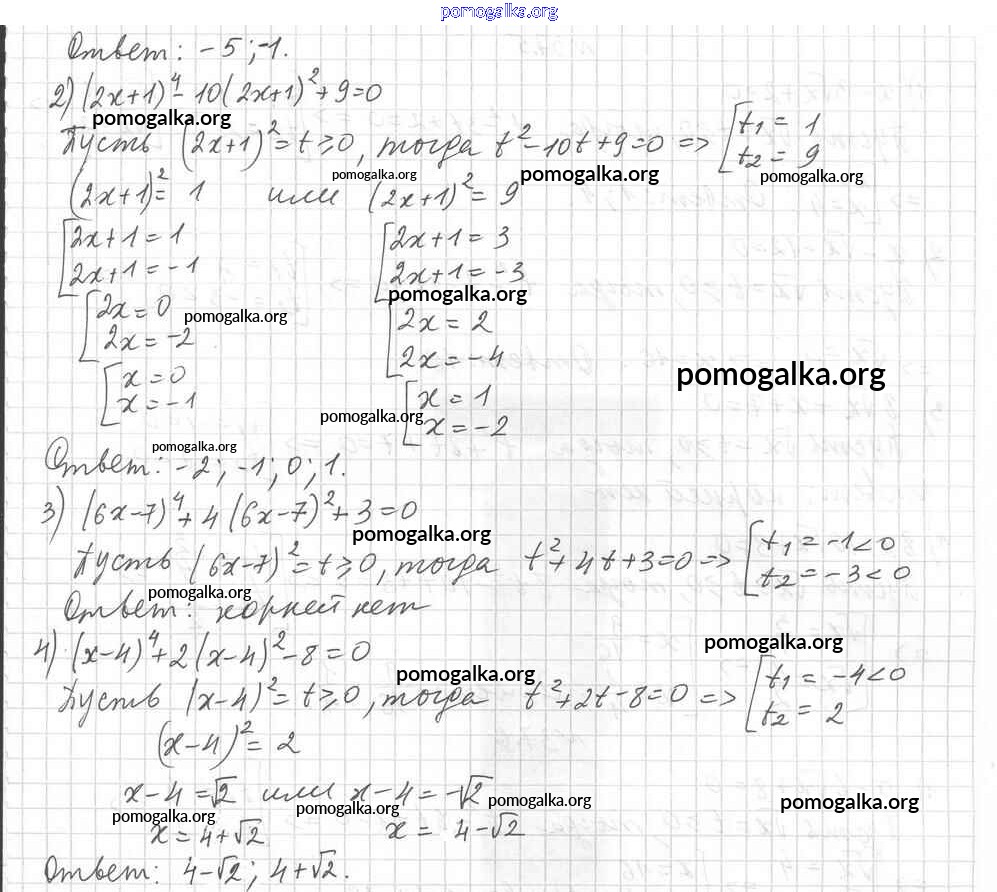 pomogalka.org
Ответ: -5; -1.
2) (2x+1)⁴ - 10(2x+1)² + 9 = 0
pomogalka.org
Пусть (2x+1)² = t ≥ 0, тогда t² - 10t + 9 = 0 => [ t₁ = 1
t₂ = 9
pomogalka.org pomogalka.org pomogalka.org
(2x+1)² = 1 или (2x+1)² = 9
[ 2x+1 = 1 [ 2x+1 = 3
2x+1 = -1 2x+1 = -3
pomogalka.org
[ 2x = 0 pomogalka.org [ 2x = 2
2x = -2 2x = -4
pomogalka.org
[ x = 0 [ x = 1
x = -1 pomogalka.org x = -2
pomogalka.org
Ответ: -2; -1; 0; 1.
3) (6x-7)⁴ + 4(6x-7)² + 3 = 0
pomogalka.org
Пусть (6x-7)² = t ≥ 0, тогда t² + 4t + 3 = 0 => [ t₁ = -1 < 0
t₂ = -3 < 0
pomogalka.org
Ответ: корней нет
4) (x-4)⁴ + 2(x-4)² - 8 = 0
pomogalka.org
pomogalka.org
Пусть (x-4)² = t ≥ 0, тогда t² + 2t - 8 = 0 => [ t₁ = -4 < 0
t₂ = 2
(x-4)² = 2
x-4 = √2 или x-4 = -√2
pomogalka.org pomogalka.org pomogalka.org pomogalka.org
x = 4+√2 x = 4-√2
Ответ: 4-√2; 4+√2.